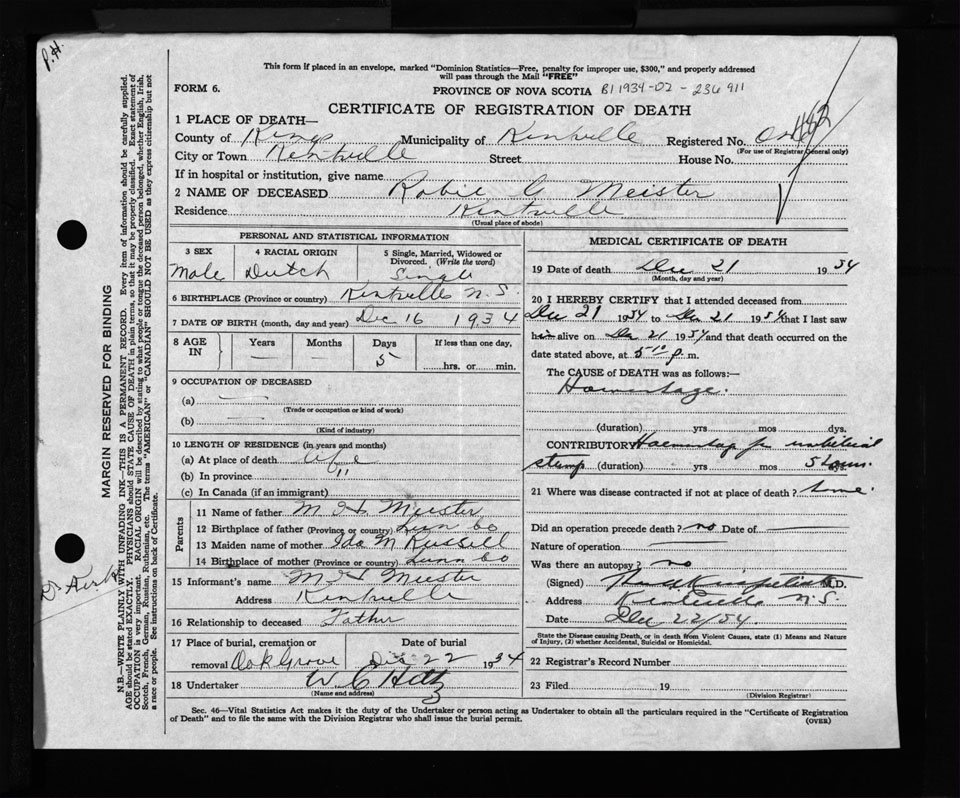 P.H.
This form if placed in an envelope, marked "Dominion Statistics—Free, penalty for improper use, $300," and properly addressed
will pass through the Mail "FREE"
FORM 6.
PROVINCE OF NOVA SCOTIA B1 1934-02 - 236911
CERTIFICATE OF REGISTRATION OF DEATH
1 PLACE OF DEATH—
County of Kings Municipality of Kentville Registered No. 482
(For use of Registrar General only)
City or Town Kentville Street House No.
If in hospital or institution, give name
2 NAME OF DECEASED Robie G Meister
Residence Kentville
(Usual place of abode)
PERSONAL AND STATISTICAL INFORMATION
3 SEX 4 RACIAL ORIGIN 5 Single, Married, Widowed or Divorced. (Write the word)
Male Dutch Single
6 BIRTHPLACE (Province or country) Kentville N.S.
7 DATE OF BIRTH (month, day and year) Dec 16 1934
8 AGE IN Years Months Days If less than one day,
— — 5 hrs. or min.
9 OCCUPATION OF DECEASED
(a) —
(Trade or occupation or kind of work)
(b) —
(Kind of industry)
10 LENGTH OF RESIDENCE (in years and months)
(a) At place of death life
(b) In province "
(c) In Canada (if an immigrant)
Parents
11 Name of father M H Meister
12 Birthplace of father (Province or country) Lunn Co
13 Maiden name of mother Ida M Russell
14 Birthplace of mother (Province or country) Lunn Co
15 Informant's name M H Meister
Address Kentville
16 Relationship to deceased Father
17 Place of burial, cremation or Date of burial
removal Oak Grove Dec 22 1934
18 Undertaker W C Hiltz
(Name and address)
MEDICAL CERTIFICATE OF DEATH
19 Date of death Dec 21 1934
(Month, day and year)
20 I HEREBY CERTIFY that I attended deceased from
Dec 21 1934 to Dec 21 1934 that I last saw
him alive on Dec 21 1934 and that death occurred on the
date stated above, at 5 10 p. m.
The CAUSE of DEATH was as follows:—
Haemorrhage.
(duration) yrs mos dys.
CONTRIBUTORY Haemorrhage from umbilical
stump (duration) yrs mos 5 hours.
21 Where was disease contracted if not at place of death? home.
Did an operation precede death? no Date of —
Nature of operation —
Was there an autopsy? no
(Signed) M.D.
Address Kentville N.S.
Date Dec 22/34.
State the Disease causing Death, or in death from Violent Causes, state (1) Means and Nature
of Injury, (2) whether Accidental, Suicidal or Homicidal.
22 Registrar's Record Number
23 Filed 19
(Division Registrar)
Sec. 46—Vital Statistics Act makes it the duty of the Undertaker or person acting as Undertaker to obtain all the particulars required in the "Certificate of Registration
of Death" and to file the same with the Division Registrar who shall issue the burial permit. (OVER)
MARGIN RESERVED FOR BINDING
N.B.—WRITE PLAINLY WITH UNFADING INK—THIS IS A PERMANENT RECORD. Every item of information should be carefully supplied.
AGE should be stated EXACTLY. PHYSICIANS should STATE CAUSE OF DEATH in plain terms, so that it may be properly classified. Exact statement of
OCCUPATION is very important. RACIAL ORIGIN will be described by stating to what people or tongue the deceased person belonged, whether English, Irish,
Scotch, French, German, Russian, Ruthenian, etc. The terms "AMERICAN" or "CANADIAN" SHOULD NOT BE USED as they express citizenship but not
a race or people. See instructions on back of Certificate.